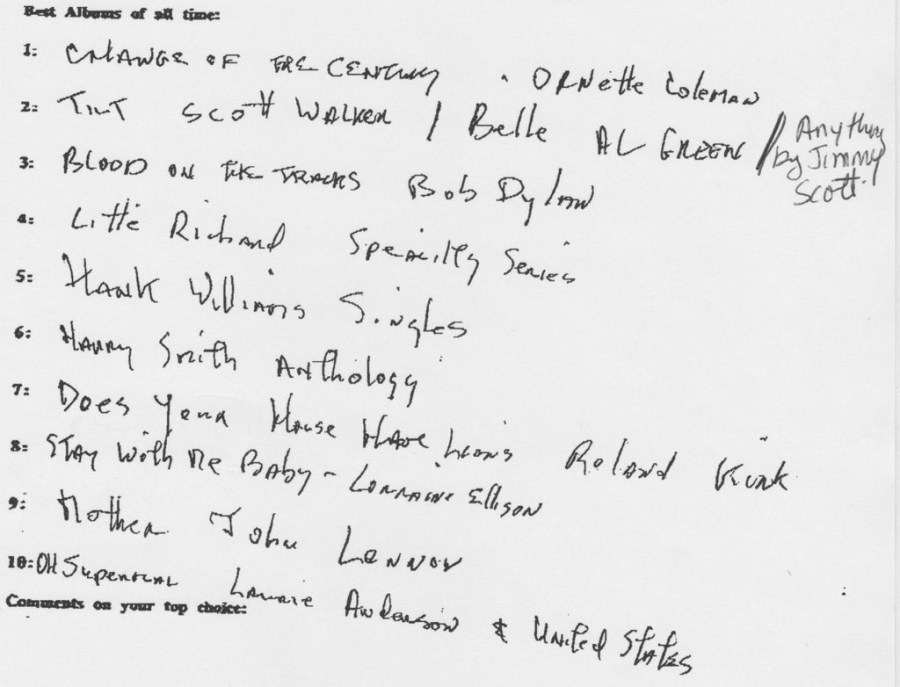 Best Albums of all time:
1: CHANGE OF THE CENTURY . ORNette Coleman
2: TILT SCOTT WALKER / Belle AL GREEN / Anything by Jimmy Scott.
3: BLOOD ON THE TRACKS Bob Dylan
4: Little Richard Specialty Series
5: HANK Williams Singles
6: Harry Smith Anthology
7: Does Your House Have Lions Roland Kirk
8: STAY With Me BABY - Lorraine Ellison
9: Mother John Lennon
10: OH Superman Laurie Anderson & United States
Comments on your top choice: